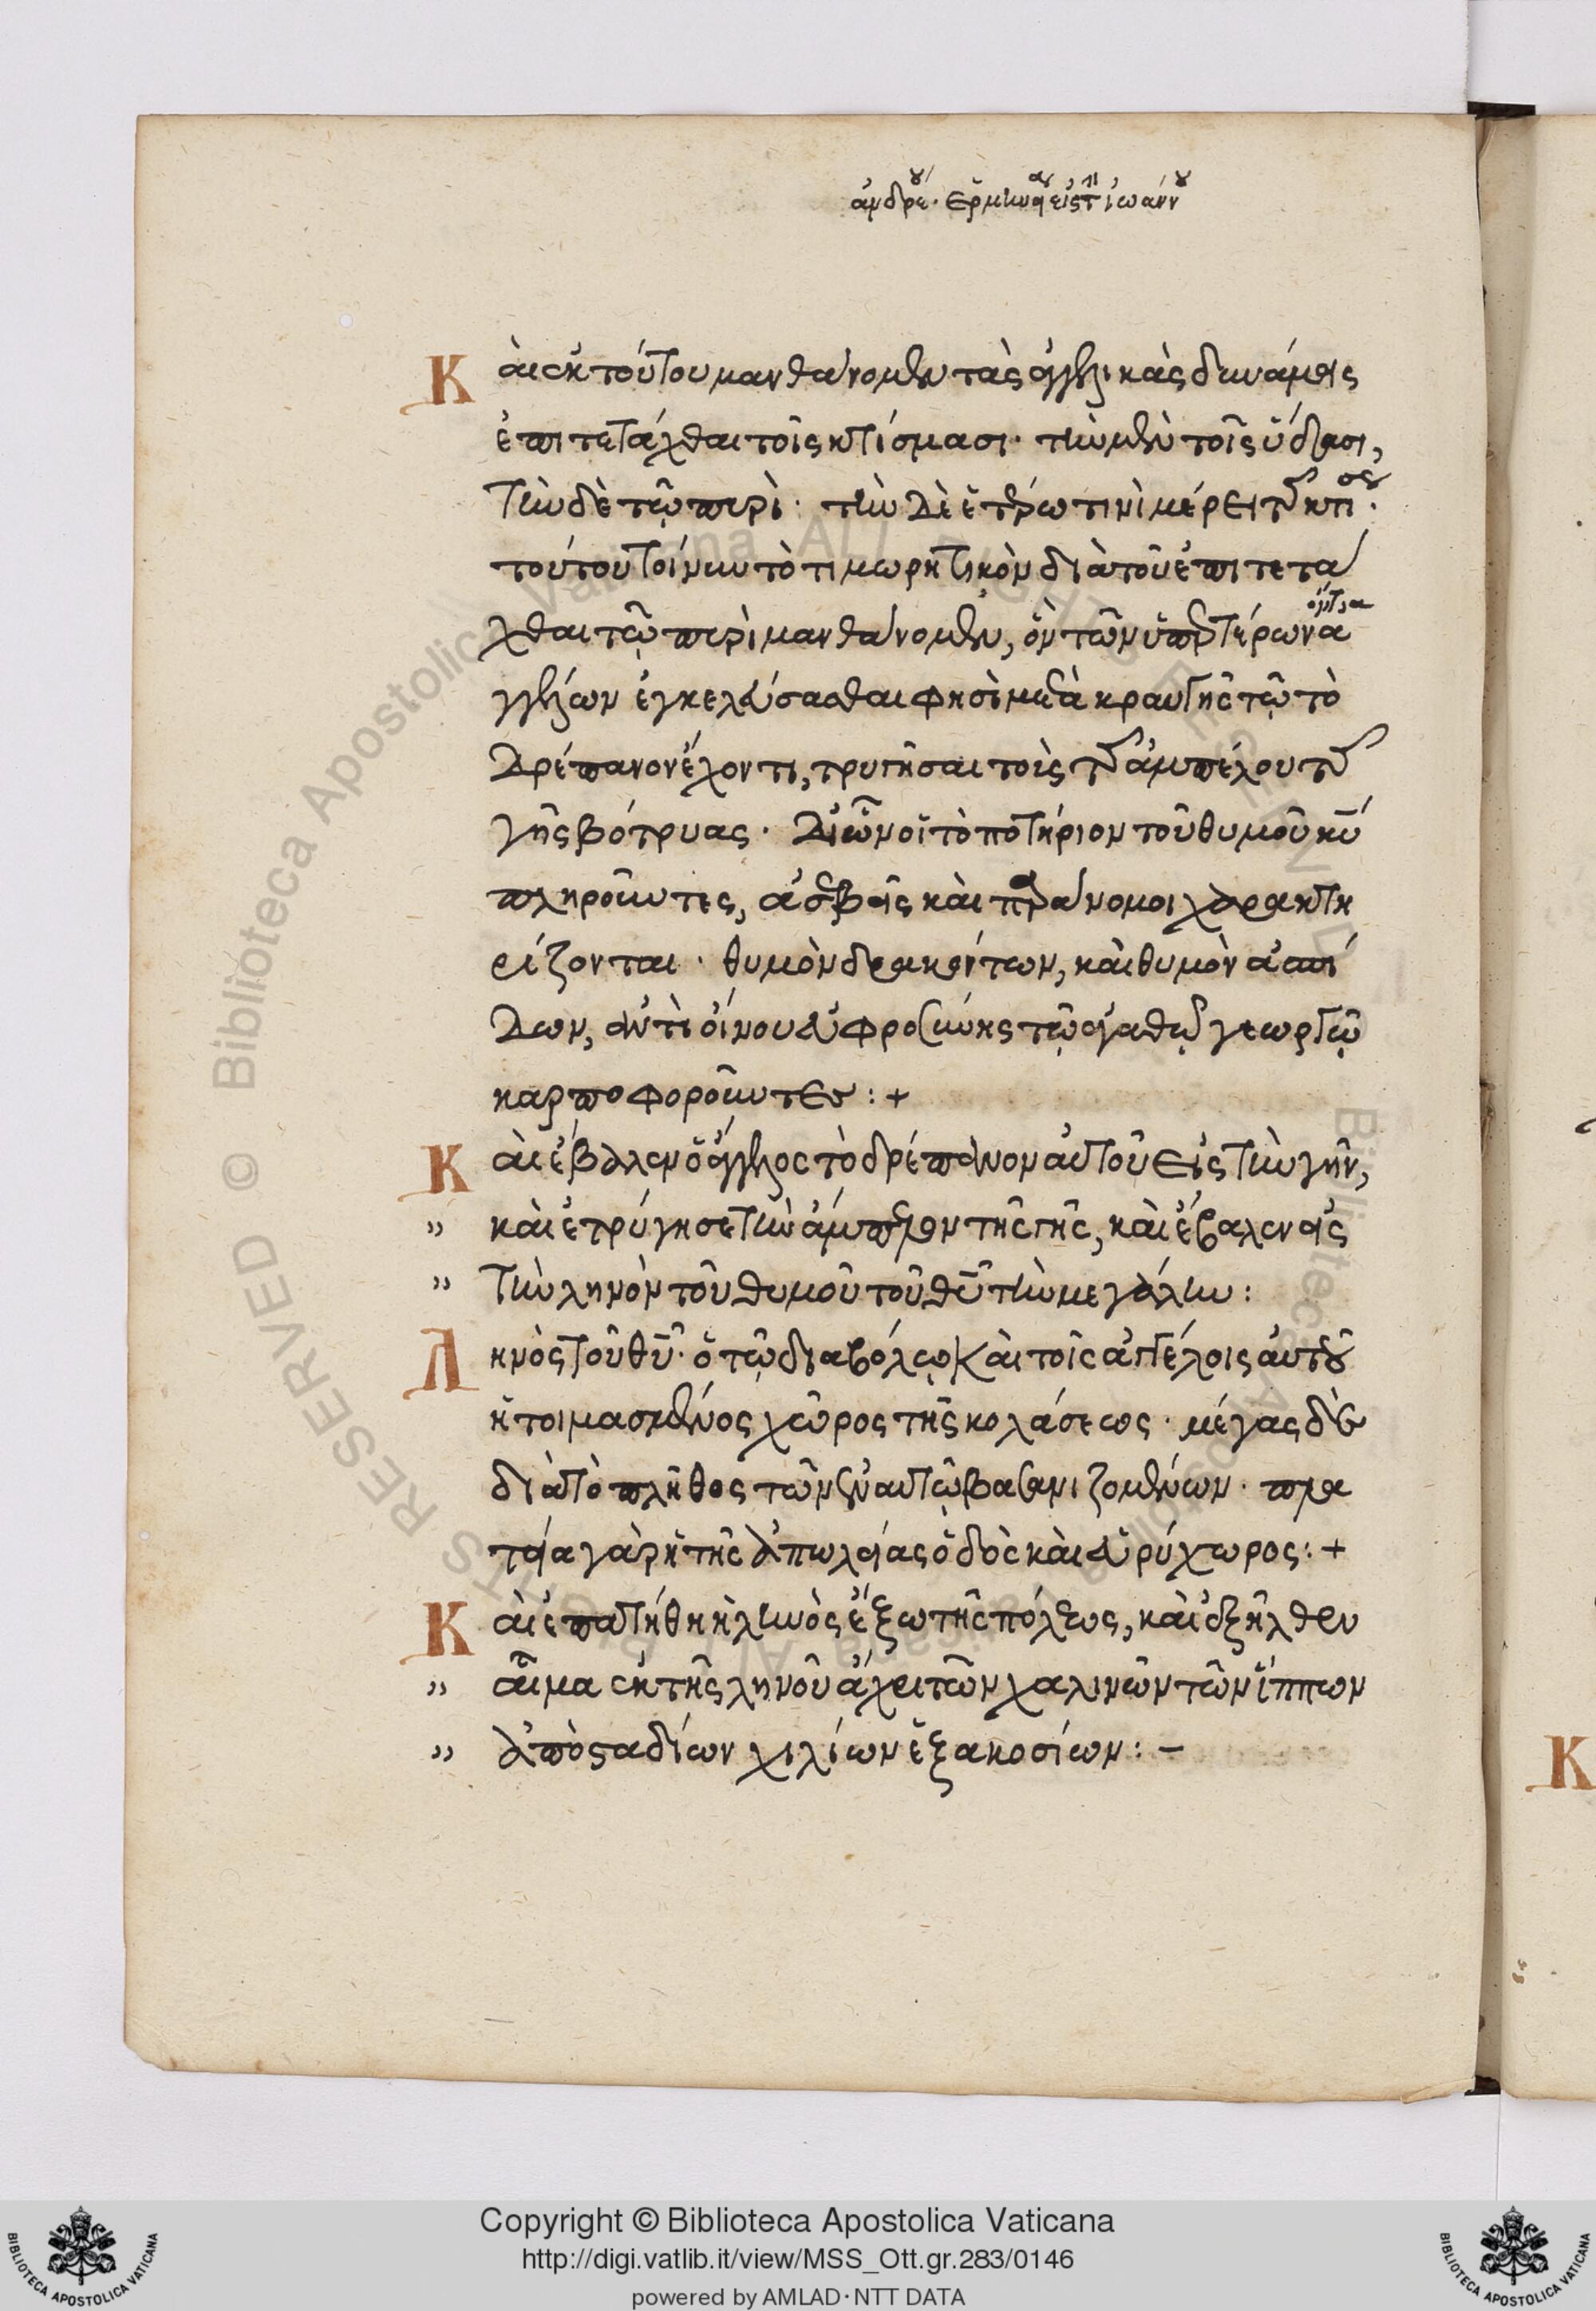 ἀνδρέου ἑρμηνεία εἰς τὴν ἰωάννου
Καὶ ἐκ τούτου μανθάνομεν τὰς ἀγγελικὰς δυνάμεις
ἐπιτετάχθαι τοῖς κτίσμασι· τὴν μὲν τοῖς ὕδασι,
τὴν δὲ τῷ πυρὶ· τὴν δὲ ἑτέρω τινὶ μέρει τῆς κτίσεως·
τούτου τοίνυν τὸ τιμωρητικὸν διὰ τοῦ ἐπιτετά
χθαι τῷ πυρὶ μανθάνομεν, ὃν τῶν ὑπερτέρων ὄντα ἀ
γγέλων ἐγκελεύσασθαι φησὶ μετὰ κραυγῆς τῷ τὸ
δρέπανον ἔχοντι, τρυγῆσαι τοὺς τῆς ἀμπέλου τῆς
γῆς βότρυας· δι ὧν οἱ τὸ ποτήριον τοῦ θυμοῦ κυ
πληροῦντες, ἀσεβεῖς καὶ παράνομοι χαρακτη
ρίζονται· θυμὸν δρακόντων, καὶ θυμὸν ἀσπί
δων, ἀντὶ οἴνου εὐφροσύνης τῷ ἀγαθῷ γεωργῷ
καρποφοροῦντες:+
Καὶ ἔβαλεν ὁ ἄγγελος τὸ δρέπανον αὐτοῦ εἰς τὴν γῆν,
" καὶ ἐτρύγησε τὴν ἄμπελον τῆς γῆς, καὶ ἔβαλεν εἰς
" τὴν ληνὸν τοῦ θυμοῦ τοῦ θυ τὴν μεγάλην:
Ληνὸς τοῦ θυ· ὁ τῷ διαβόλῳ καὶ τοῖς ἀγγέλοις αὐτοῦ
ἡτοιμασμένος χῶρος τῆς κολάσεως· μέγας δὲ
διὰ τὸ πλῆθος τῶν ἐν αὐτῷ βασανιζομένων· πλα
τεῖα γὰρ ἡ τῆς ἀπωλείας ὁδὸς καὶ εὐρύχωρος:+
Καὶ ἐπατήθη ἡ ληνὸς ἔξω τῆς πόλεως, καὶ ἐξῆλθεν
" αἷμα ἐκ τῆς ληνοῦ ἄχρι τῶν χαλινῶν τῶν ἵππων
" ἀπὸ σταδίων χιλίων ἑξακοσίων:-
Κ
Copyright © Biblioteca Apostolica Vaticana
http://digi.vatlib.it/view/MSS_Ott.gr.283/0146
powered by AMLAD·NTT DATA